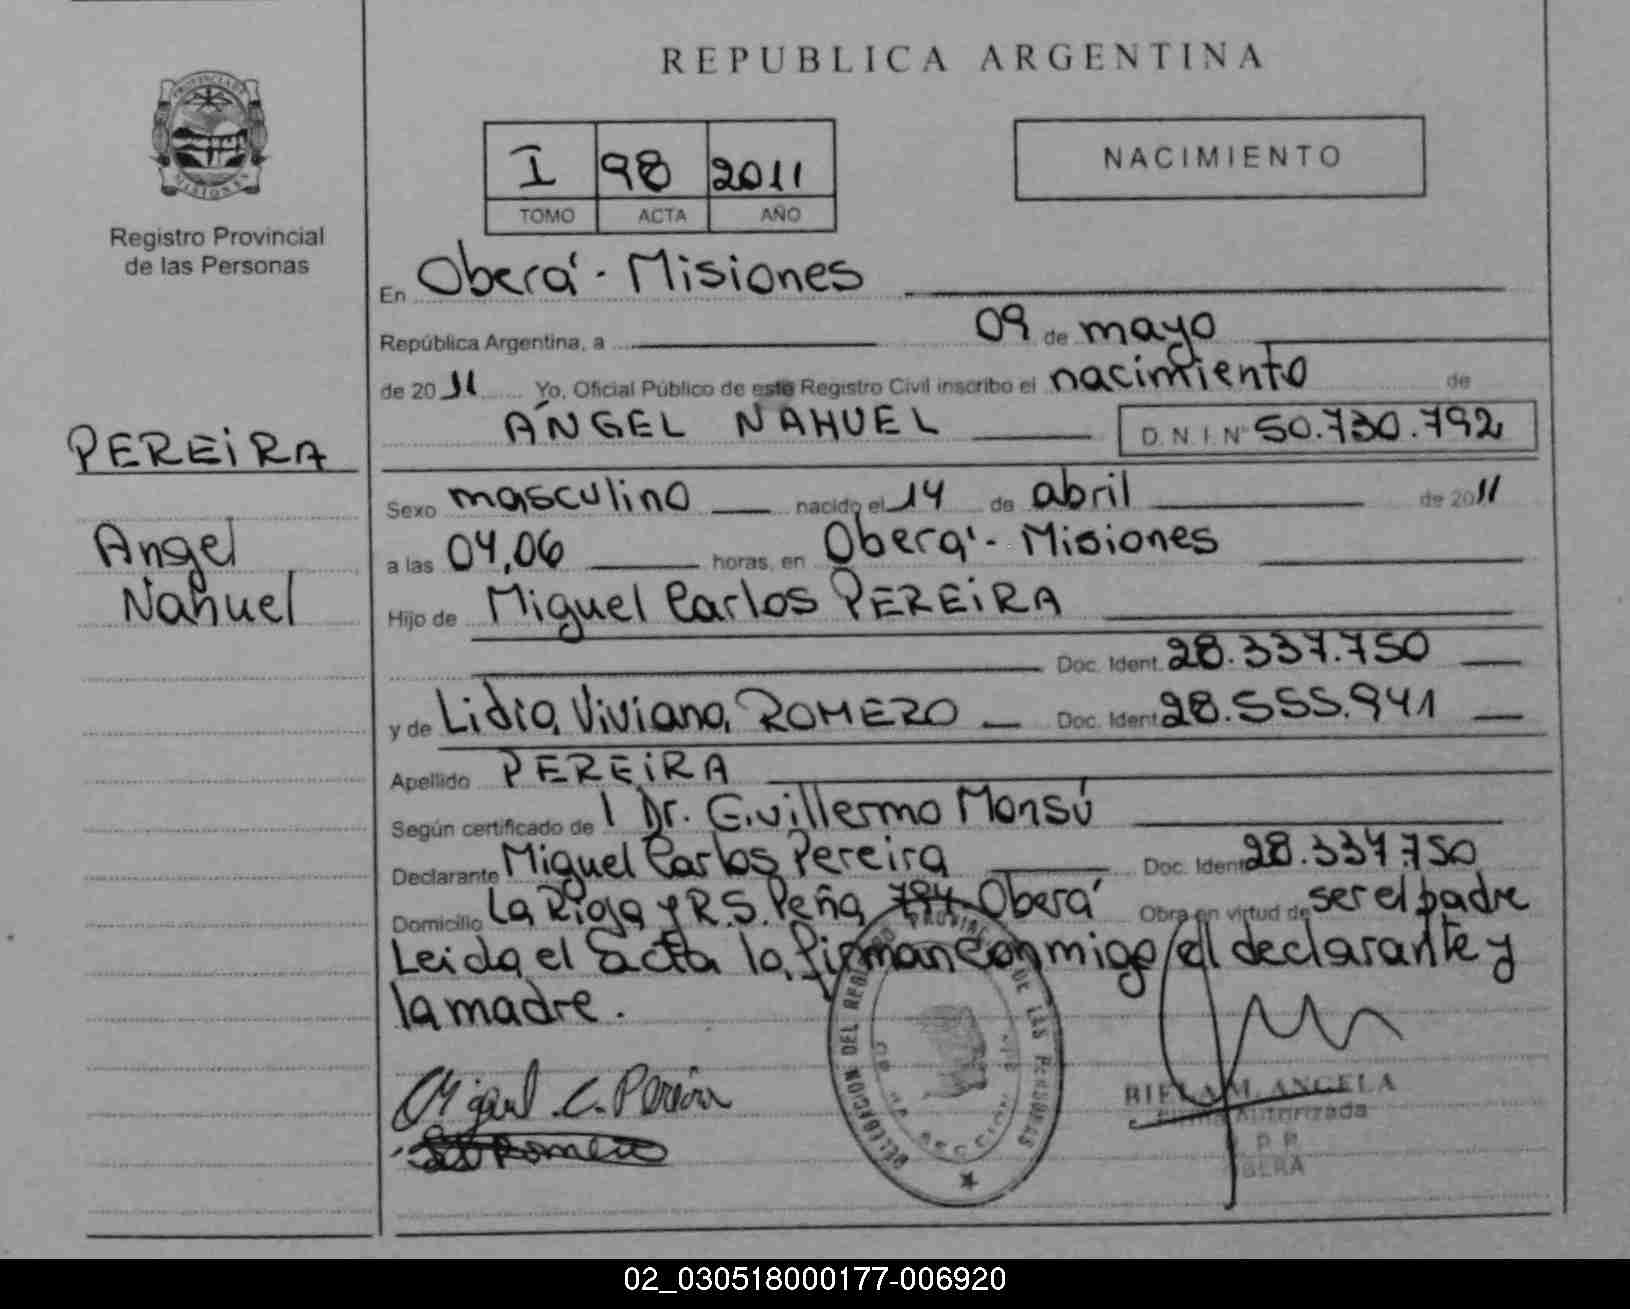 REPUBLICA ARGENTINA
PROVINCIA DE
MISIONES
Registro Provincial
de las Personas
I 98 2011
TOMO ACTA AÑO
NACIMIENTO
En Oberá - Misiones
República Argentina, a 09 de mayo
de 2011 Yo, Oficial Público de este Registro Civil inscribo el nacimiento de
ANGEL NAHUEL D.N.I. Nº 50.730.792
PEREIRA
Angel
Nahuel
Sexo masculino nacido el 14 de abril de 2011
a las 04,06 horas, en Oberá - Misiones
Hijo de Miguel Carlos PEREIRA
Doc. Ident. 28.337.750
y de Lidia Viviana ROMERO Doc. Ident. 28.555.941
Apellido PEREIRA
Según certificado de l Dr. Guillermo Monsú
Declarante Miguel Carlos Pereira Doc. Ident. 28.337.750
Domicilio La Rioja y R.S. Peña Oberá Obra en virtud de ser el padre
Leida el Acta la firman conmigo el declarante y
la madre.
Miguel C. Pereira
Romero
DELEGACION DEL REGISTRO PROVINCIAL DE LAS PERSONAS
M. ANGELA
Firma Autorizada
02_030518000177-006920